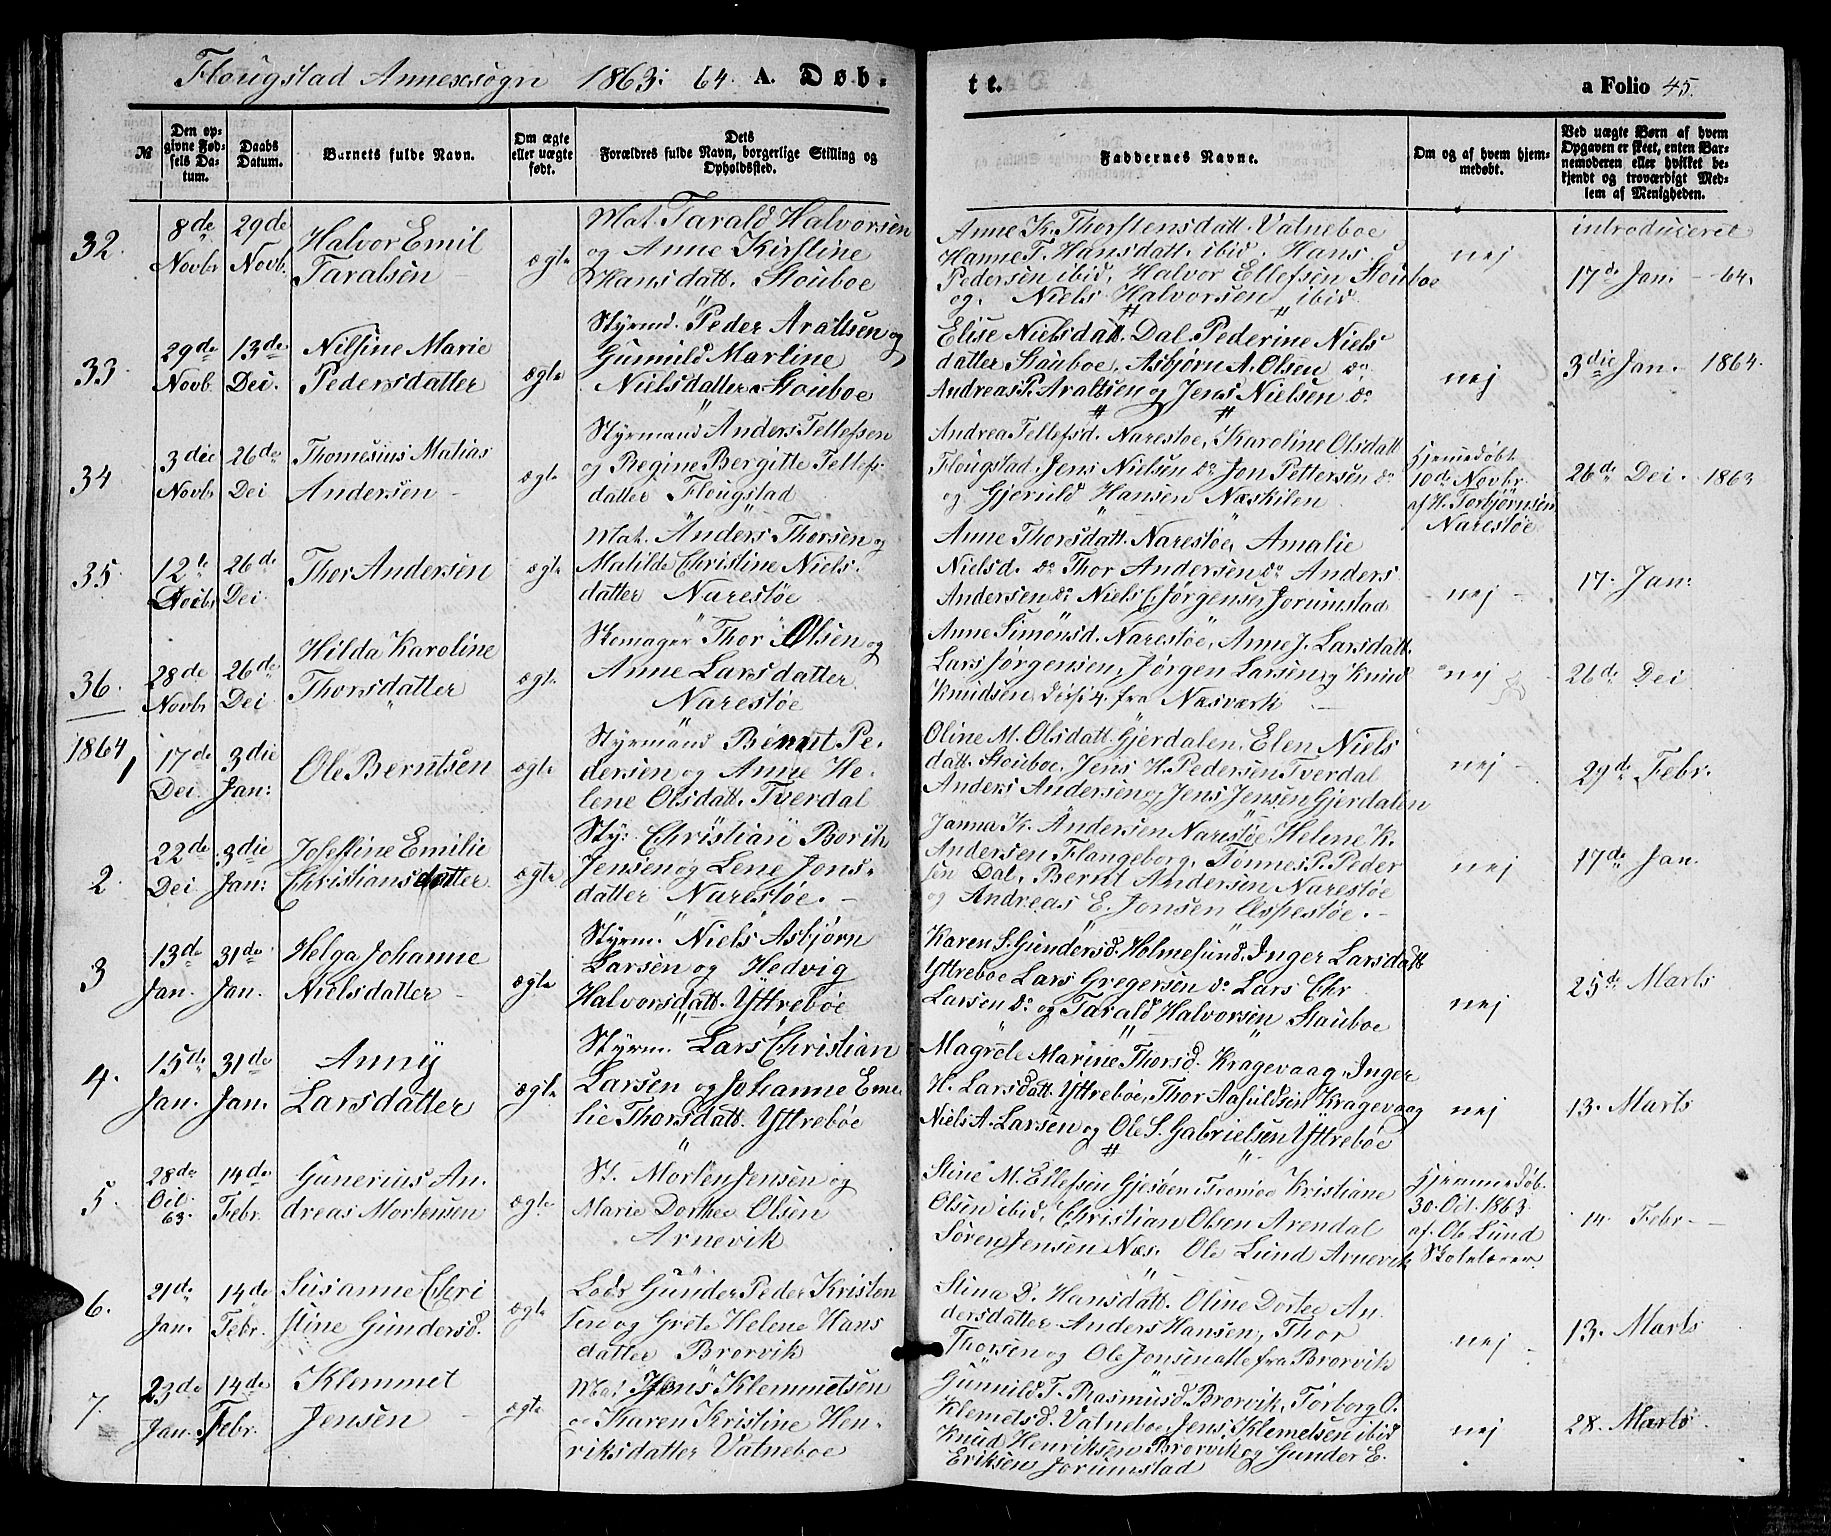 Flougstad Annexsogn 1863: 64. A. Døb- tt. a Folio 45.
№
Den opgivne Fødsels Datum.
Daabs Datum.
Barnets fulde Navn.
Om ægte eller uægte født.
Dets Forældres fulde Navn, borgerlige Stilling og Opholdssted.
Faddernes Navne.
Om og af hvem hjemmedøbt.
Ved uægte Børn af hvem Opgaven er skeet, enten Barnemoderen eller hvilket bekjendt og troværdigt Medlem af Menigheden.
32.
8de Novbr
29de Novb.
Halvor Emil
Taralsen
ægte
Mat. Tarald Halvorsen
og Anne Kirstine
Hansdatt. Stouboe
Anne K. Thorstensdatt. Valneboe
Hanne T. Hansdatt. ibid. Hans
Pedersen ibid. Halvor Ellefsen Stouboe
og Niels Halvorsen ibid
nej
introduceret
17de Jan. - 64.
33.
29de Novb.
13de Dec.
Nilsine Marie
Pedersdatter
ægte
Styrmd. Peder Araltsen og
Gunnild Martine
Nielsdatter Stouboe
Elise Nielsdatt. Dal. Pederine Niels
datter Stouboe. Asbjørn A. Olsen do
Andreas P. Araltsen og Jens Nielsen do
nej
3die Jan. - 1864.
34
3die Novbr
26de Dec
Thomesius Matias
Andersen
ægte
Styrmand Anders Tellefsen
og Regine Bergitte Tellefs
datter Flougstad
Andrea Tellefsd. Narestøe, Karoline Olsdatt
Flougstad, Jens Nielsen do Jon Pettersen do
og Gjeruld Hansen Næskilen
hjemmedøbt
10de Novbr
af H. Torbjörnsen
Narestøe
26de Dec. - 1863
35.
12te
26de Dec
Thor Andersen
ægte
Mat. Anders Thorsen og
Matilde Christine Niels-
datter Narestøe
Anne Thorsdatt. Narestøe, Amalie
Nielsd. do Thor Andersen do Anders
Andersen do Niels C. Jørgensen Jorumstad
nej
17. Jan:
36.
28de Novbr
26de Dec
Hilda Karoline
Thorsdatter
ægte
Skomager Thor Olsen og
Anne Larsdatter
Narestøe
Anne Simonsd. Narestøe, Anne J. Larsdatt.
Lars Jørgensen, Jørgen Larsen og Knud
Knudsen, disse 4 fra Nasværk
nej
26de Dec
1864,
17de Dec.
3die Jan:
Ole Berntsen
ægte
Styrmand Bernt Pe-
dersen og Anne He-
lene Olsdatt. Tverdal
Oline M. Olsdatt. Gjerdalen, Elen Niels
datt. Stouboe, Jens H. Pedersen Tverdal
Anders Andersen og Jens Jensen Gjerdalen
nej
29de Febr.
2.
22de Dec.
3die Jan:
Josefine Emilie
Christiansdatter
ægte
Sty: Christian Borik
Jensen og Lene Jons-
datter Narestøe. -
Janna K. Andersen Narestøe Helene K.
Andersen Flangeborg, Tønnes P. Peder
sen Dal, Bernt Andersen Narestøe
og Andreas E. Jonsen Aspestøe. -
nej
17de Jan.
3
13de Jan.
31de Jan.
Helga Johanne
Nielsdatter
ægte
Styrm. Niels Asbjørn
Larsen og Hedvig
Halvorsdatt. Yttrebøe
Karen S. Gundersd. Holmesund. Inger Larsdatt
Yttreboe Lars Gregersen do Lars Chr
Larsen do og Tarald Halvorsen Stauboe
nej
25de Marts
4.
15de Jan.
31de Jan.
Anny
Larsdatter
ægte
Styrm. Lars Christian
Larsen og Johanne Eme
lie Thorsdatt. Yttrebøe
Magrete Marine Thorsd. Kragevaag, Inger
H. Larsdatt. Yttrebøe, Thor Aasuldsen Kragevaag
Niels A. Larsen og Ole S. Gabrielsen Yttrebøe
nej
13. Marts
5.
28de Oct. 63.
14de Febr.
Gunerius An-
dreas Mortensen
ægte
St. Morten Jensen og
Marie Dorthea Olsen
Arnevik
Stine M. Ellefsen Gjesøen, Tromøe Kristiane
Olsen ibid, Christian Olsen Arendal
Søren Jensen Næs. Ole Lund Arnevik
Hjemmedøb.
30. Oct. 1863
af Ole Lund
Skolelærer
14. Febr -
6.
21de Jan.
14de Febr.
Susanne Chri
stine Gundersd.
ægte
Lods Gunder Peder Kristen
sen og Grete Helene Hans
datter Brorvik
Stina D. Hansdatt. Oline Dortee An
dersdatter Anders Hansen, Thor
Thorsen og Ole Jonsen alle fra Brorvik
nej
13. Marts
7.
23de Jan.
14de Febr.
Klemmet
Jensen
ægte
Mat. Jens Klemmetsen
og Karen Kristine Hen-
riksdatter Valneboe
Gunnild T. Rasmusd. Brorvik, Torborg O.
Klemetsd. Valneboe, Jens Klemetsen ibid
Knud Henriksen Brorvik og Gunder E.
Eriksen Jorumstad
nej
28. Marts